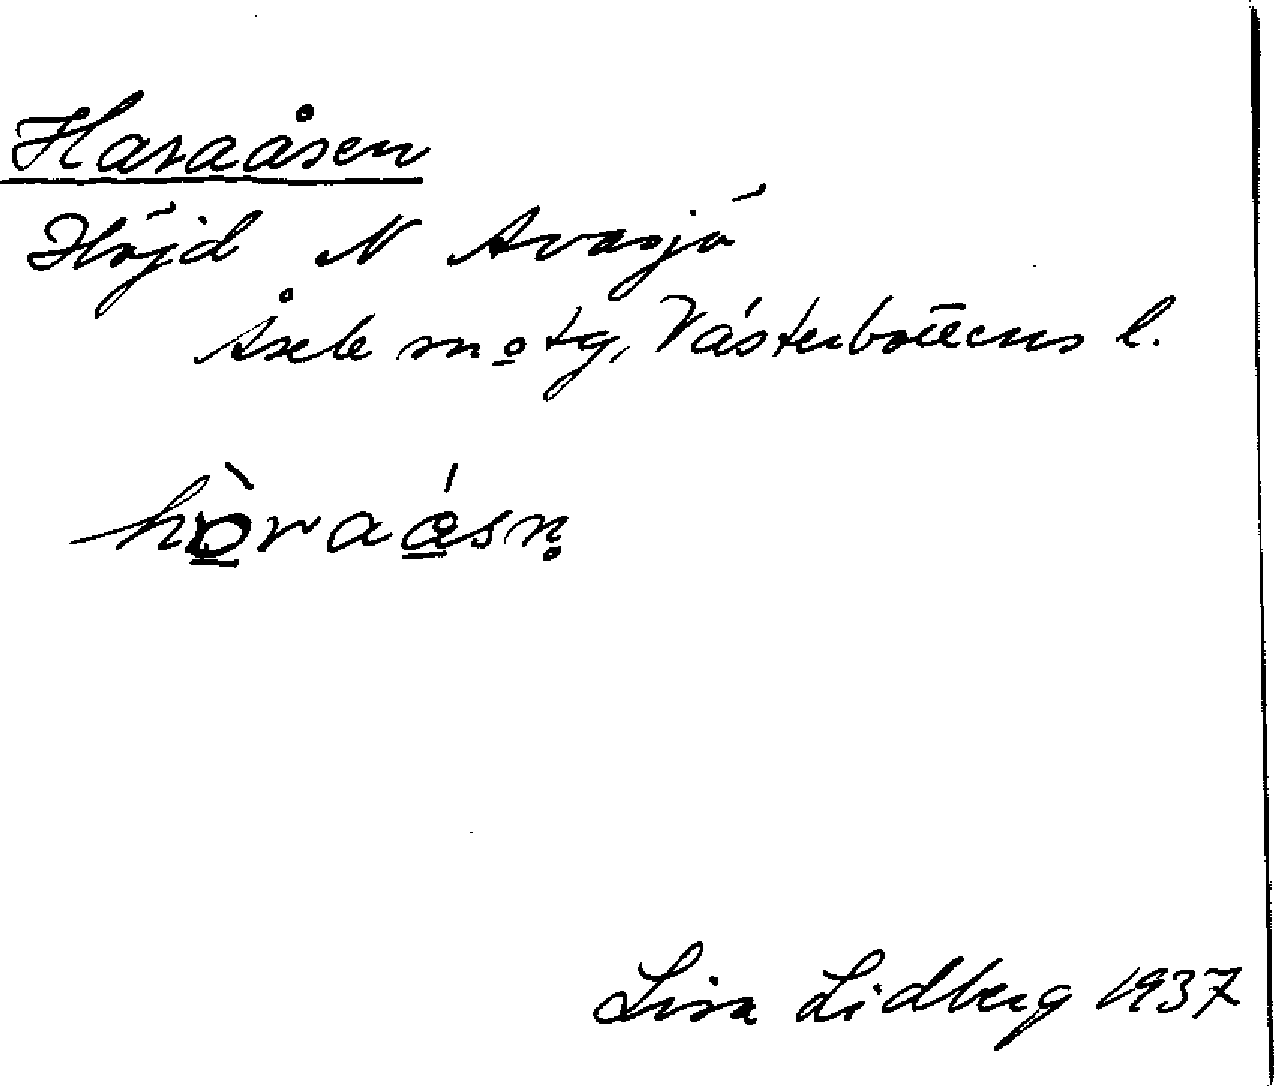 Haraåsen
Höjd N Avasjö
Åsele sn o tg, Västerbottens l.
hò̱raá̱sn̥
Lisa Lidberg 1937